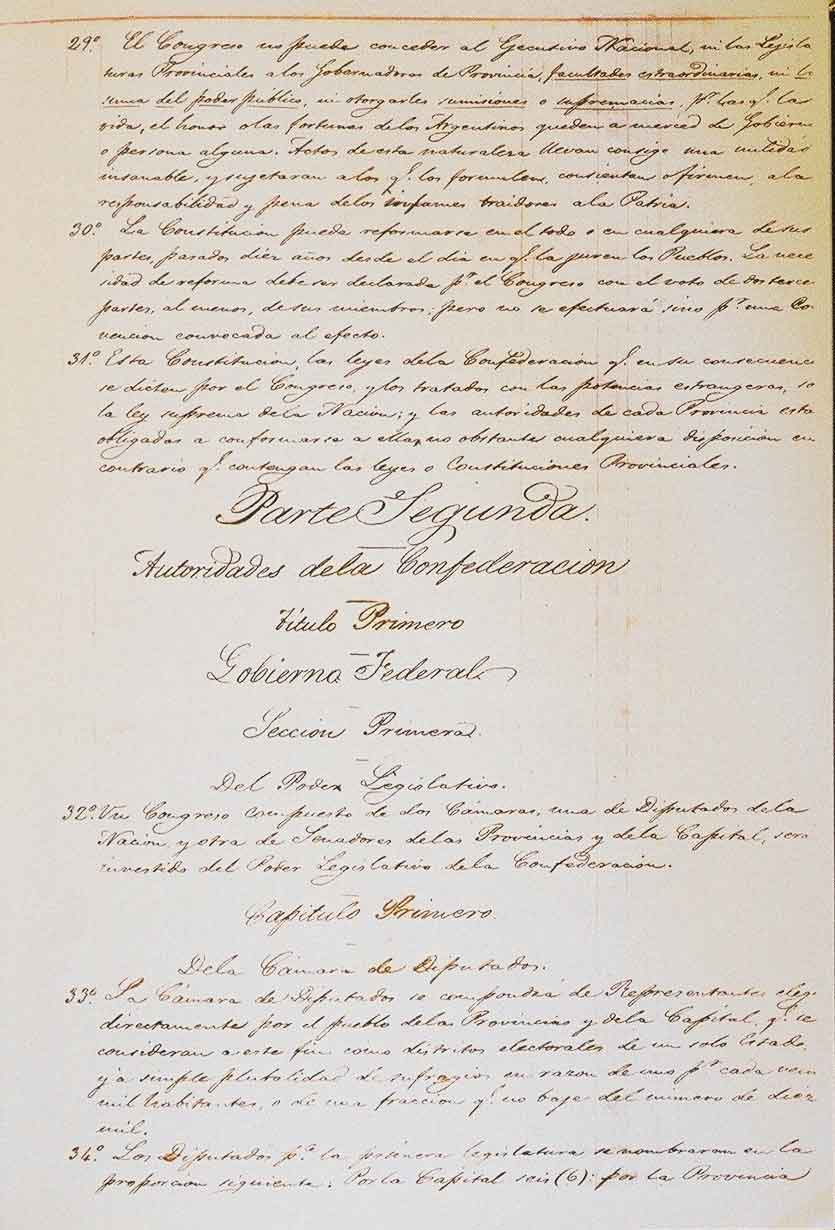 29º. El Congreso no puede conceder al Ejecutivo Nacional, ni las Lejisla
turas Provinciales a los Gobernadores de Provincia, facultades estraordinarias, ni la
suma del poder público, ni otorgarles sumisiones o supremacias, pr. las q. la
vida, el honor o las fortunas de los Argentinos queden a merced de Gobiern
o persona alguna. Actos de esta naturaleza llevan consigo una nulidad
insanable, y sujetaran a los q. los formulen, consientan o firmen, a la
responsabilidad y pena de los infames traidores a la Patria.
30º. La Constitucion puede reformarse en el todo o en cualquiera de sus
partes, pasados diez años desde el dia en q. la juren los Pueblos. La nece
sidad de reforma debe ser declarada pr. el Congreso con el voto de dos terce
partes, al menos, de sus miembros; pero no se efectuará sino pr. una Co
vencion convocada al efecto.
31º. Esta Constitucion, las leyes dela Confederacion q. en su consecuenc
se dicten por el Congreso, y los tratados con las potencias estrangeras, so
la ley suprema dela Nacion; y las autoridades de cada Provincia está
obligadas a conformarse a ella, no obstante cualquiera disposicion en
contrario q. contengan las leyes o Constituciones Provinciales.
Parte Segunda.
Autoridades dela Confederacion
Título Primero
Gobierno Federal
Seccion Primera.
Del Poder Legislativo.
32º. Un Congreso compuesto de dos Cámaras, una de Diputados dela
Nacion, y otra de Senadores delas Provincias y dela Capital, será
investido del Poder Legislativo dela Confederacion.
Capitulo Primero.
Dela Cámara de Diputados.
33º. La Cámara de Diputados se compondrá de Representantes eleg
directamente por el pueblo delas Provincias y dela Capital, q. se
consideran a este fin como distritos electorales de un solo Estado,
y a simple pluralidad de sufragios en razon de uno pr. cada vein
mil habitantes, o de una fraccion q. no baje del numero de diez
mil.
34º. Los Diputados pa. la primera legislatura se nombraran en la
proporcion siguiente: Por la Capital seis (6): por la Provincia